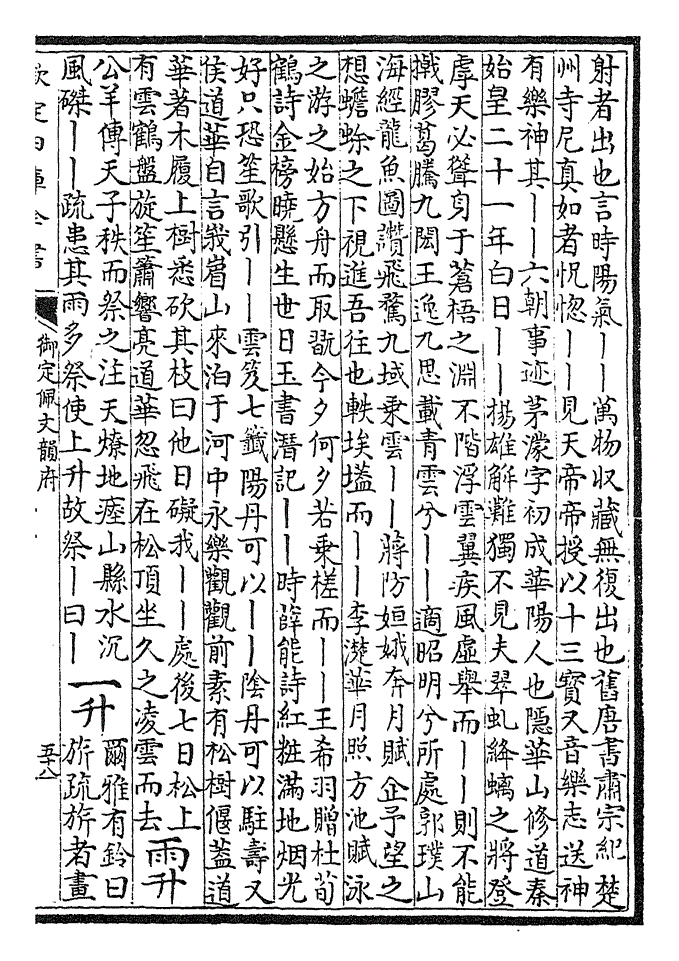 射者出也言時陽氣——萬物収藏無復出也舊唐書肅宗紀楚
州寺尼真如者怳惚——見天帝帝授以十三寶又音樂志送神
有樂神其——六朝事迹茅濛字初成華陽人也隱華山修道秦
始皇二十一年白日——揚雄解難獨不見夫翠虬絳螭之將登
虖天必聳身于蒼梧之淵不階浮雲翼疾風虛舉而——則不能
撠膠葛騰九閎王逸九思載青雲兮——適昭明兮所處郭璞山
海經龍魚圖讚飛騖九域乘雲——蔣防姮娥奔月賦企予望之
想蟾蜍之下視進吾往也軼埃壒而——李濯華月照方池賦泳
之游之始方舟而取翫今夕何夕若乗槎而——王希羽贈杜荀
鶴詩金榜曉懸生世日玉書潛記——時薛能詩紅粧滿地烟光
好只恐笙歌引——雲笈七籤陽丹可以——陰丹可以駐壽又
侯道華自言峩嵋山來泊于河中永樂觀觀前素有松樹偃蓋道
華著木履上樹悉砍其枝曰他日礙我——處後七日松上
有雲鶴盤旋笙簫響亮道華忽飛在松頂坐久之凌雲而去
雨升
公羊傳天子秩而祭之注天燎地瘞山縣水沉
風磔——疏患其雨多祭使上升故祭—曰—
一升
爾雅有鈴曰
旂疏旂者畫
欽定四庫全書
御定佩文韻府
五十八